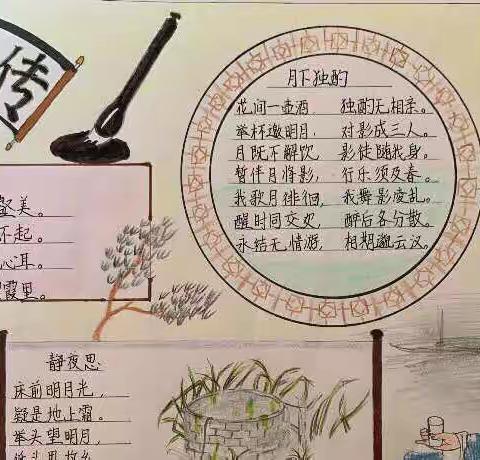 传
月下独酌
花间一壶酒, 独酌无相亲。
举杯邀明月, 对影成三人。
月既不解饮, 影徒随我身。
暂伴月将影, 行乐须及春。
我歌月徘徊, 我舞影凌乱。
醒时同交欢, 醉后各分散。
永结无情游, 相期邈云汉。
美。
不起。
心耳。
霞里。
静夜思
床前明月光,
疑是地上霜。
举头望明月,
低头思故乡